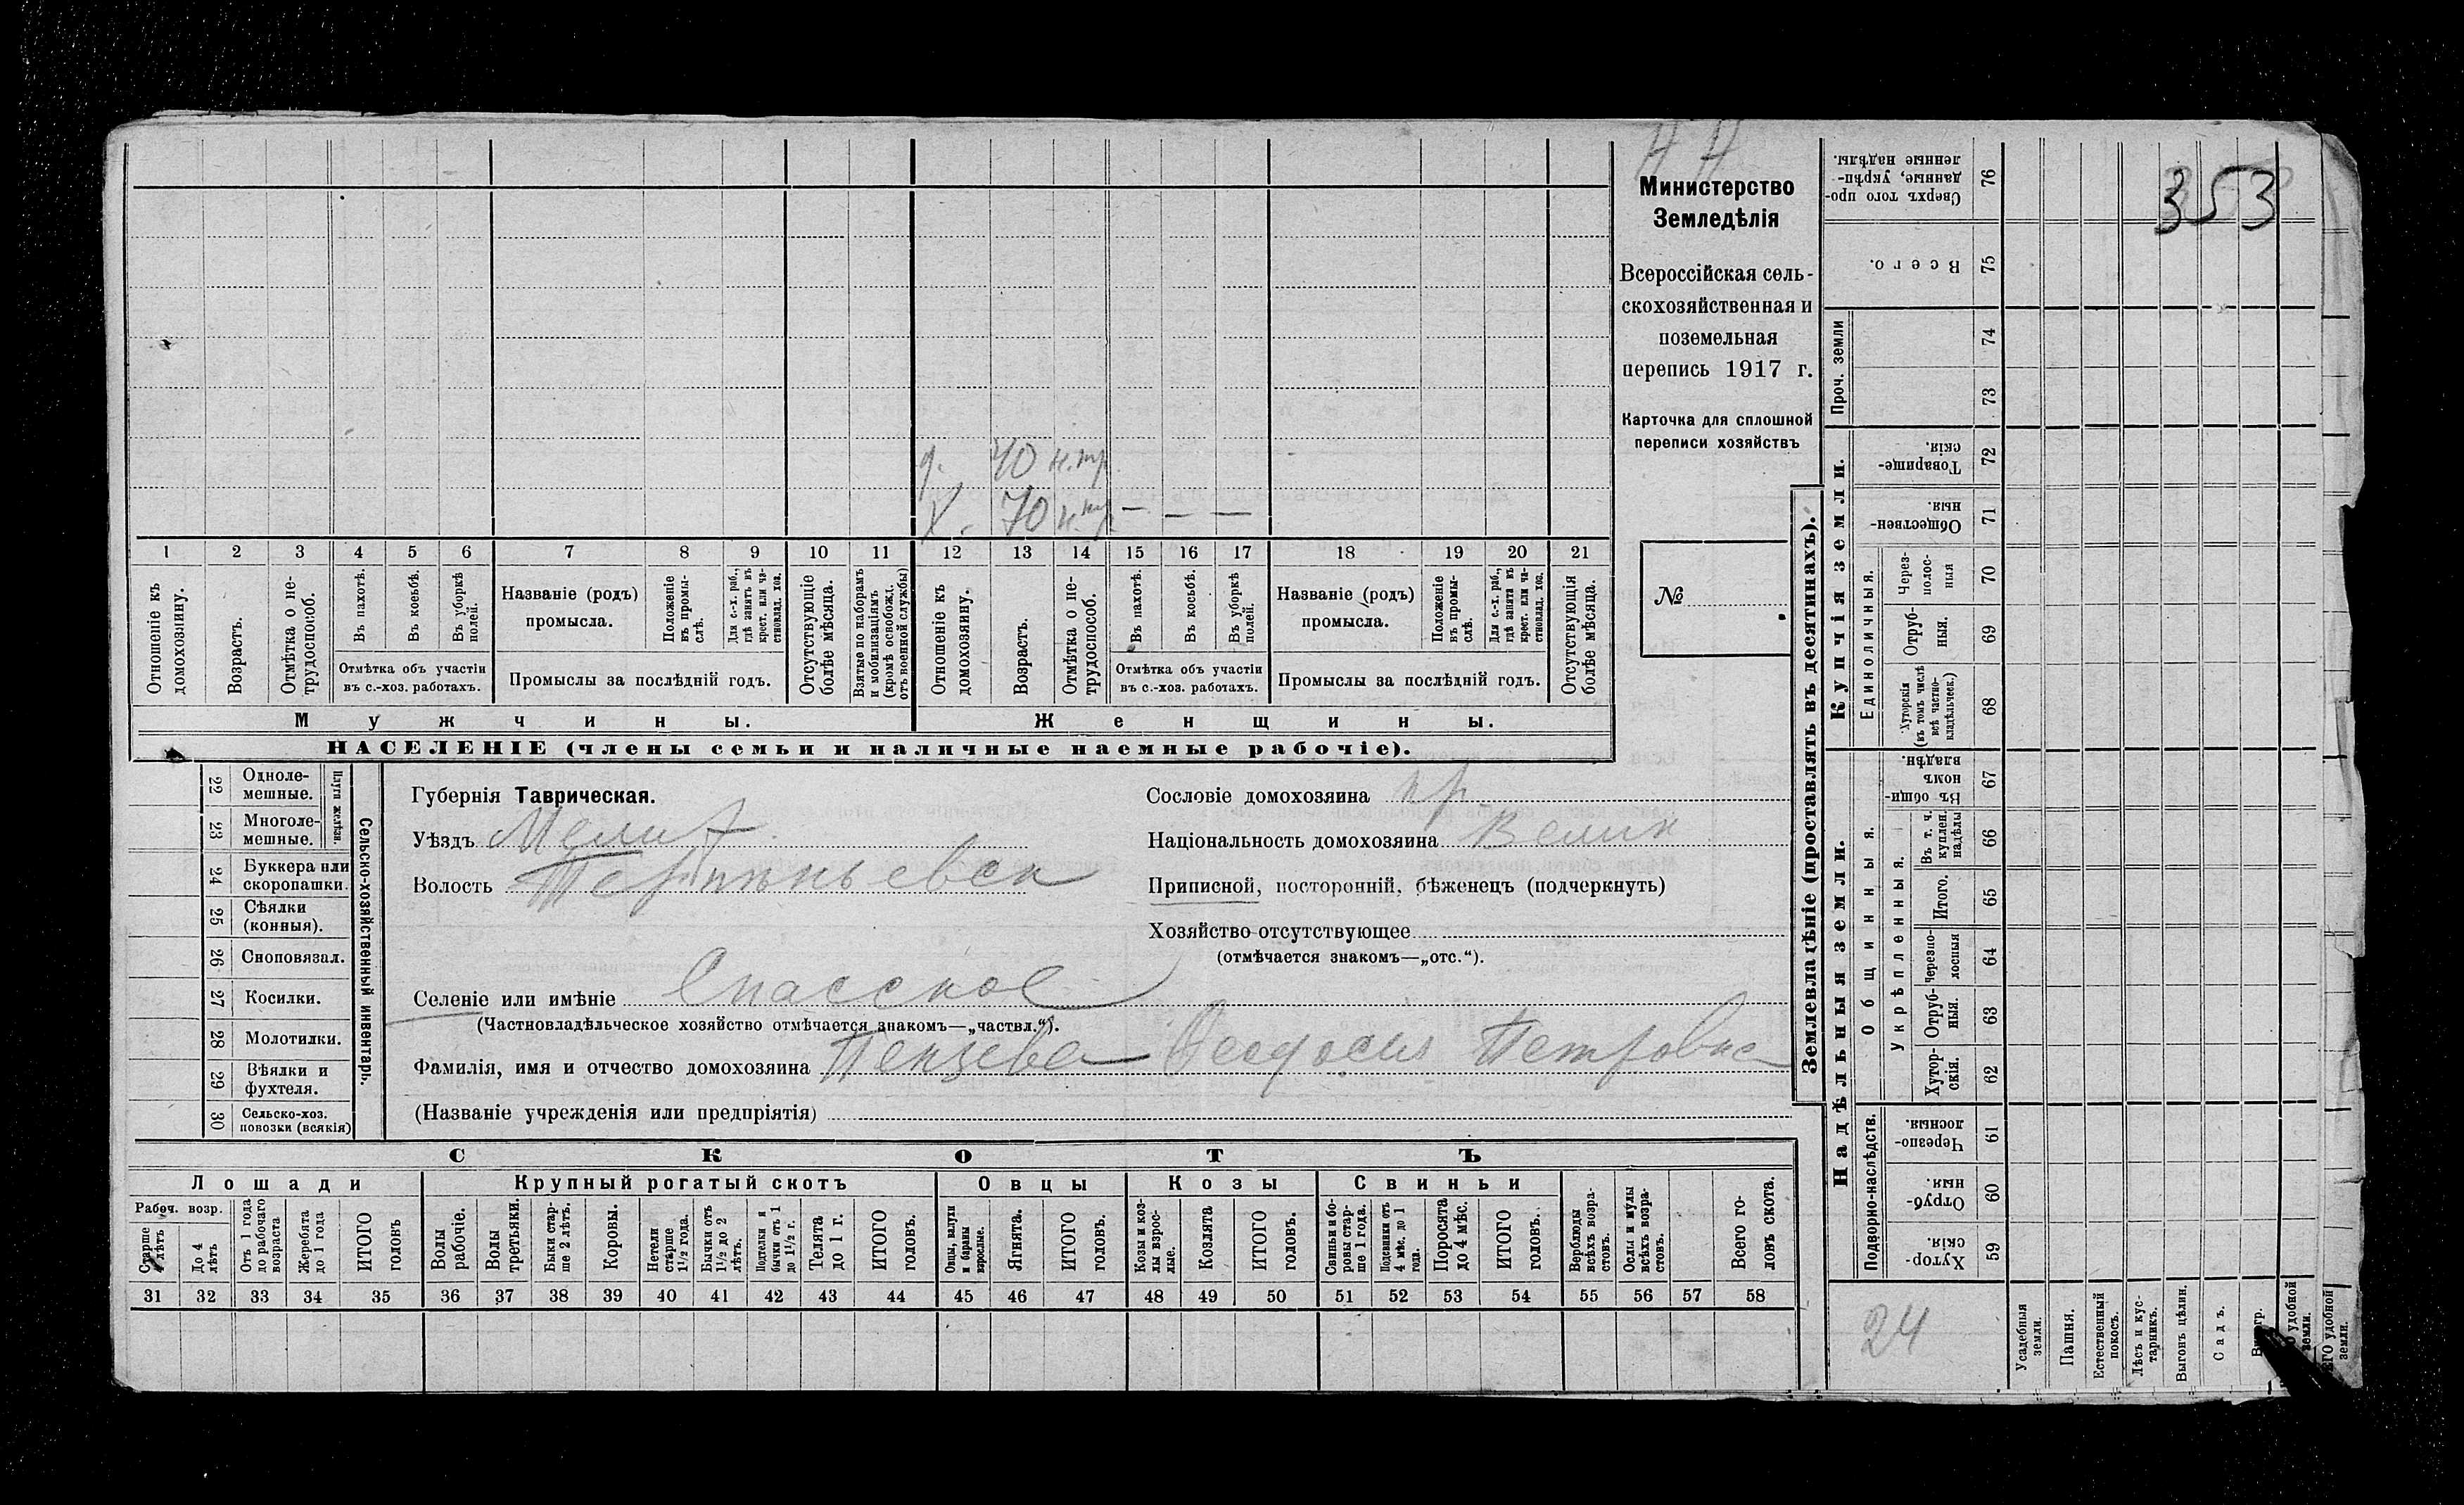 353
Министерство
Земледѣлія
Всероссійская сель-
скохозяйственная и
поземельная
перепись 1917 г.
Карточка для сплошной
переписи хозяйствъ
№
д. 40 н.тр
Х. 70 н.тр — — —
1 2 3 4 5 6 7 8 9 10 11 12 13 14 15 16 17 18 19 20 21
Отношеніе къ домохозяину.
Возрастъ.
Отмѣтка о не-трудоспособ.
Въ пахотѣ.
Въ косьбѣ.
Въ уборкѣ полей.
Отмѣтка объ участіи
въ с.-хоз. работахъ.
Названіе (родъ)
промысла.
Положеніе въ промы-слѣ.
Для с.-х. раб., гдѣ занятъ въ крест. или ча-стновлад. хоз.
Промыслы за послѣдній годъ.
Отсутствующіе болѣе мѣсяца.
Взятые по наборамъ и мобилизаціямъ (кромѣ освобожд. отъ военной службы)
Отношеніе къ домохозяину.
Возрастъ.
Отмѣтка о не-трудоспособ.
Въ пахотѣ.
Въ косьбѣ.
Въ уборкѣ полей.
Отмѣтка объ участіи
въ с.-хоз. работахъ.
Названіе (родъ)
промысла.
Положеніе въ промы-слѣ.
Для с.-х. раб., гдѣ занята въ крест. или ча-стновлад. хоз.
Промыслы за послѣдній годъ.
Отсутствующія болѣе мѣсяца.
Мужчины.
Женщины.
НАСЕЛЕНІЕ (члены семьи и наличные наемные рабочіе).
22 Одноле-мешные.
23 Многоле-мешные.
Плуги желѣзн.
24 Буккера или скоропашки.
25 Сѣялки (конныя).
26 Сноповязал.
27 Косилки.
28 Молотилки.
29 Вѣялки и фухтеля.
30 Сельско-хоз. повозки (всякія)
Сельско-хозяйственный инвентарь.
Губернія Таврическая.
Уѣздъ Мелит
Волость
Сословіе домохозяина кр
Національность домохозяина Велик
Приписной, посторонній, бѣженецъ (подчеркнуть)
Хозяйство отсутствующее
(отмѣчается знакомъ—„отс.“).
Селеніе или имѣніе Спасское
(Частновладѣльческое хозяйство отмѣчается знакомъ—„частвл.“).
Фамилія, имя и отчество домохозяина Пензева Феодосия Петровна
(Названіе учрежденія или предпріятія)
СКОТЪ
Лошади
Крупный рогатый скотъ
Овцы
Козы
Свиньи
Рабоч. возр.
Старше 4 лѣтъ
До 4 лѣтъ
Отъ 1 года до рабочаго возраста
Жеребята до 1 года
ИТОГО головъ
Волы рабочіе.
Волы третьяки.
Быки стар-ше 2 лѣтъ.
Коровы.
Нетели старше 1½ года.
Бычки отъ 1½ до 2 лѣтъ.
Подтелки и бычки отъ 1 до 1½ г.
Телята до 1 г.
ИТОГО головъ.
Овцы, валухи и бараны взрослые.
Ягнята.
ИТОГО головъ.
Козы и коз-лы взрос-лые.
Козлята
ИТОГО головъ.
Свиньи и бо-ровы стар-ше 1 года.
Подсвинки отъ 4 мѣс. до 1 года.
Поросята до 4 мѣс.
ИТОГО головъ.
Верблюды всѣхъ возра-стовъ.
Ослы и мулы всѣхъ возра-стовъ.
Всего го-ловъ скота.
31 32 33 34 35 36 37 38 39 40 41 42 43 44 45 46 47 48 49 50 51 52 53 54 55 56 57 58
Землевладѣніе (проставлять въ десятинахъ).
Сверхъ того про-данные, укрѣп-ленные надѣлы. 76
Всего. 75
Проч. земли 74
73
Купчія земли.
Товарище-скія. 72
Обществен-ныя 71
Единоличныя.
Черес-полос-ныя 70
Отруб-ныя. 69
Хуторскія (въ томъ числѣ всѣ частно-владѣльческ.) 68
Надѣльныя земли.
Общинныя.
Въ общи-номъ владѣн. 67
Укрѣпленныя.
Въ т. ч. куплен. надѣлы 66
Итого. 65
Черезпо-лосныя 64
Отруб-ныя. 63
Хутор-скія. 62
Подворно-наслѣдств.
Черезпо-лосныя. 61
Отруб-ныя. 60
Хутор-скія. 59
24
Усадебныя земли.
Пашня.
Естественный покосъ.
Лѣсъ и кус-тарникъ.
Выгонъ цѣлин.
Садъ.
удобной земли.
удобной земли.